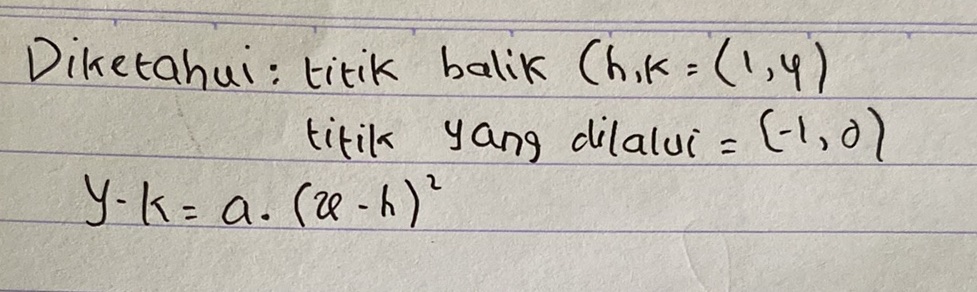 Diketahui: titik balik (h,k = (1,4)
titik yang dilalui = (-1,0)
y-k = a. (x-h)²